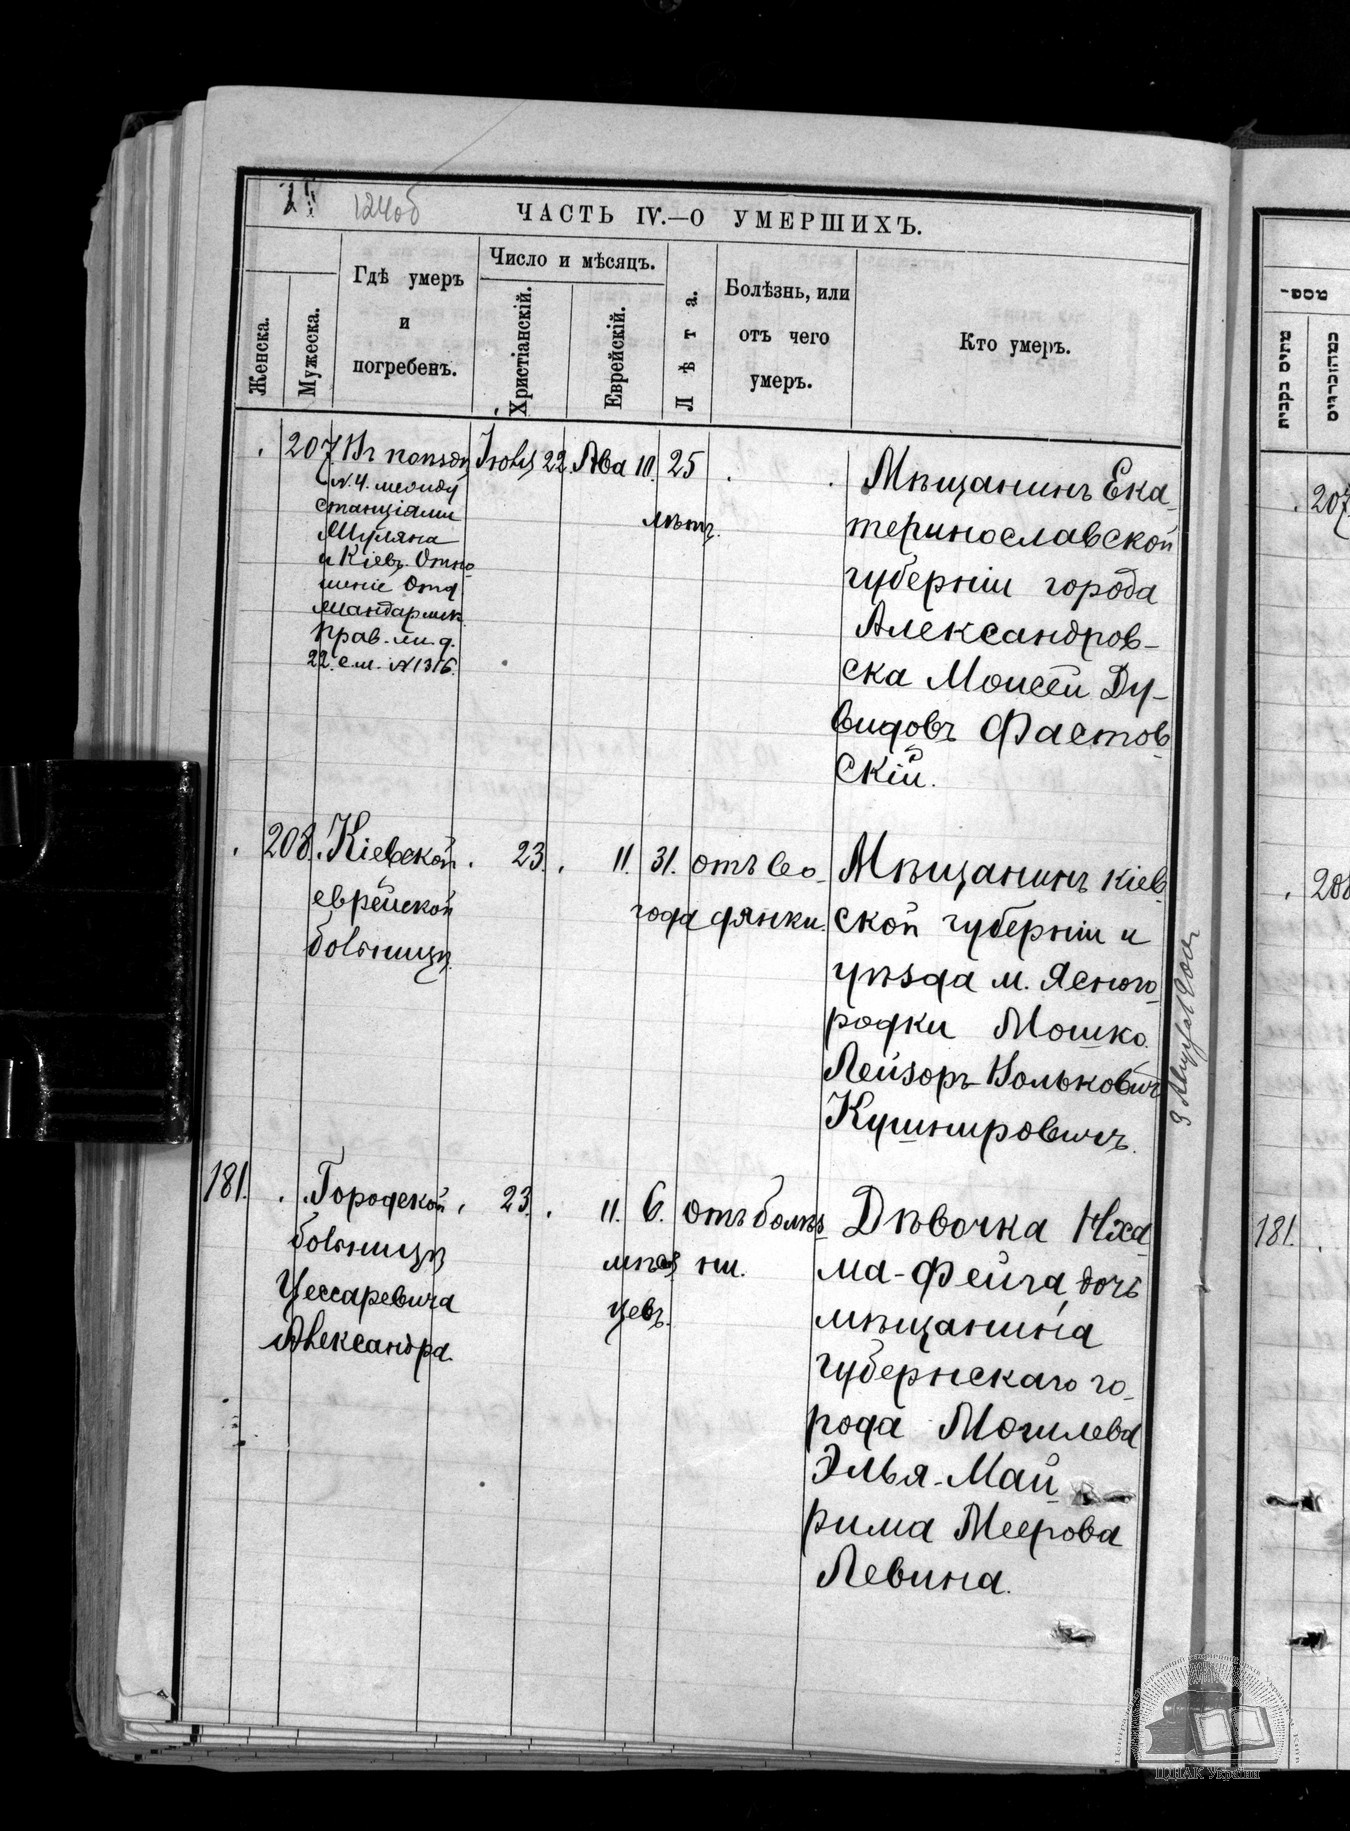 124об
ЧАСТЬ IV.—О УМЕРШИХЪ.
Женска.
Мужеска.
Гдѣ умеръ
и
погребенъ.
Число и мѣсяцъ.
Христіанскій.
Еврейскій.
Лѣта.
Болѣзнь, или
отъ чего
умеръ.
Кто умеръ.
207. Въ поѣздѣ
N. 4. между
станціями
Шуляна
и Кіевъ. Отно-
шеніе Отд
Жандармск.
22. с.м. N 1316.
Іюля 22.
Ава 10.
25
лѣтъ.
Мѣщанинъ Ека-
теринославской
губерніи города
Александров-
ска Моисей Ду-
видовъ Фастов
скій.
208. Кіевской
еврейской
больницѣ.
23.
11.
31.
года
отъ во-
дянки.
Мѣщанинъ Кіев
ской губерніи и
уѣзда м. Ясного-
родки Мошко
Лейзоръ Волькович
Кушнировичъ.
181. Городской
больницѣ
Цессаревича
Александра
23.
11.
6.
мѣся
цевъ.
отъ болѣз
ни.
Дѣвочка
ма-Фейга, дочь
мѣщанина
губернскаго го-
рода Могилева
Элья-Май
рима Меерова
Левина.
מתים נקבות
207
208
181.
ЦДІАК України